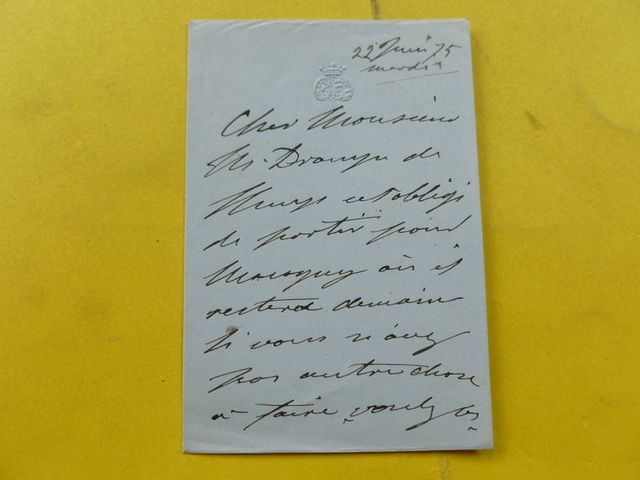 22 Juin 75
mardi
Cher Monsieur
Mr Drouyn de
Lhuys est obligé
de partir pour
où il
restera demain
si vous n'avez
pas autre chose
à faire, voulez